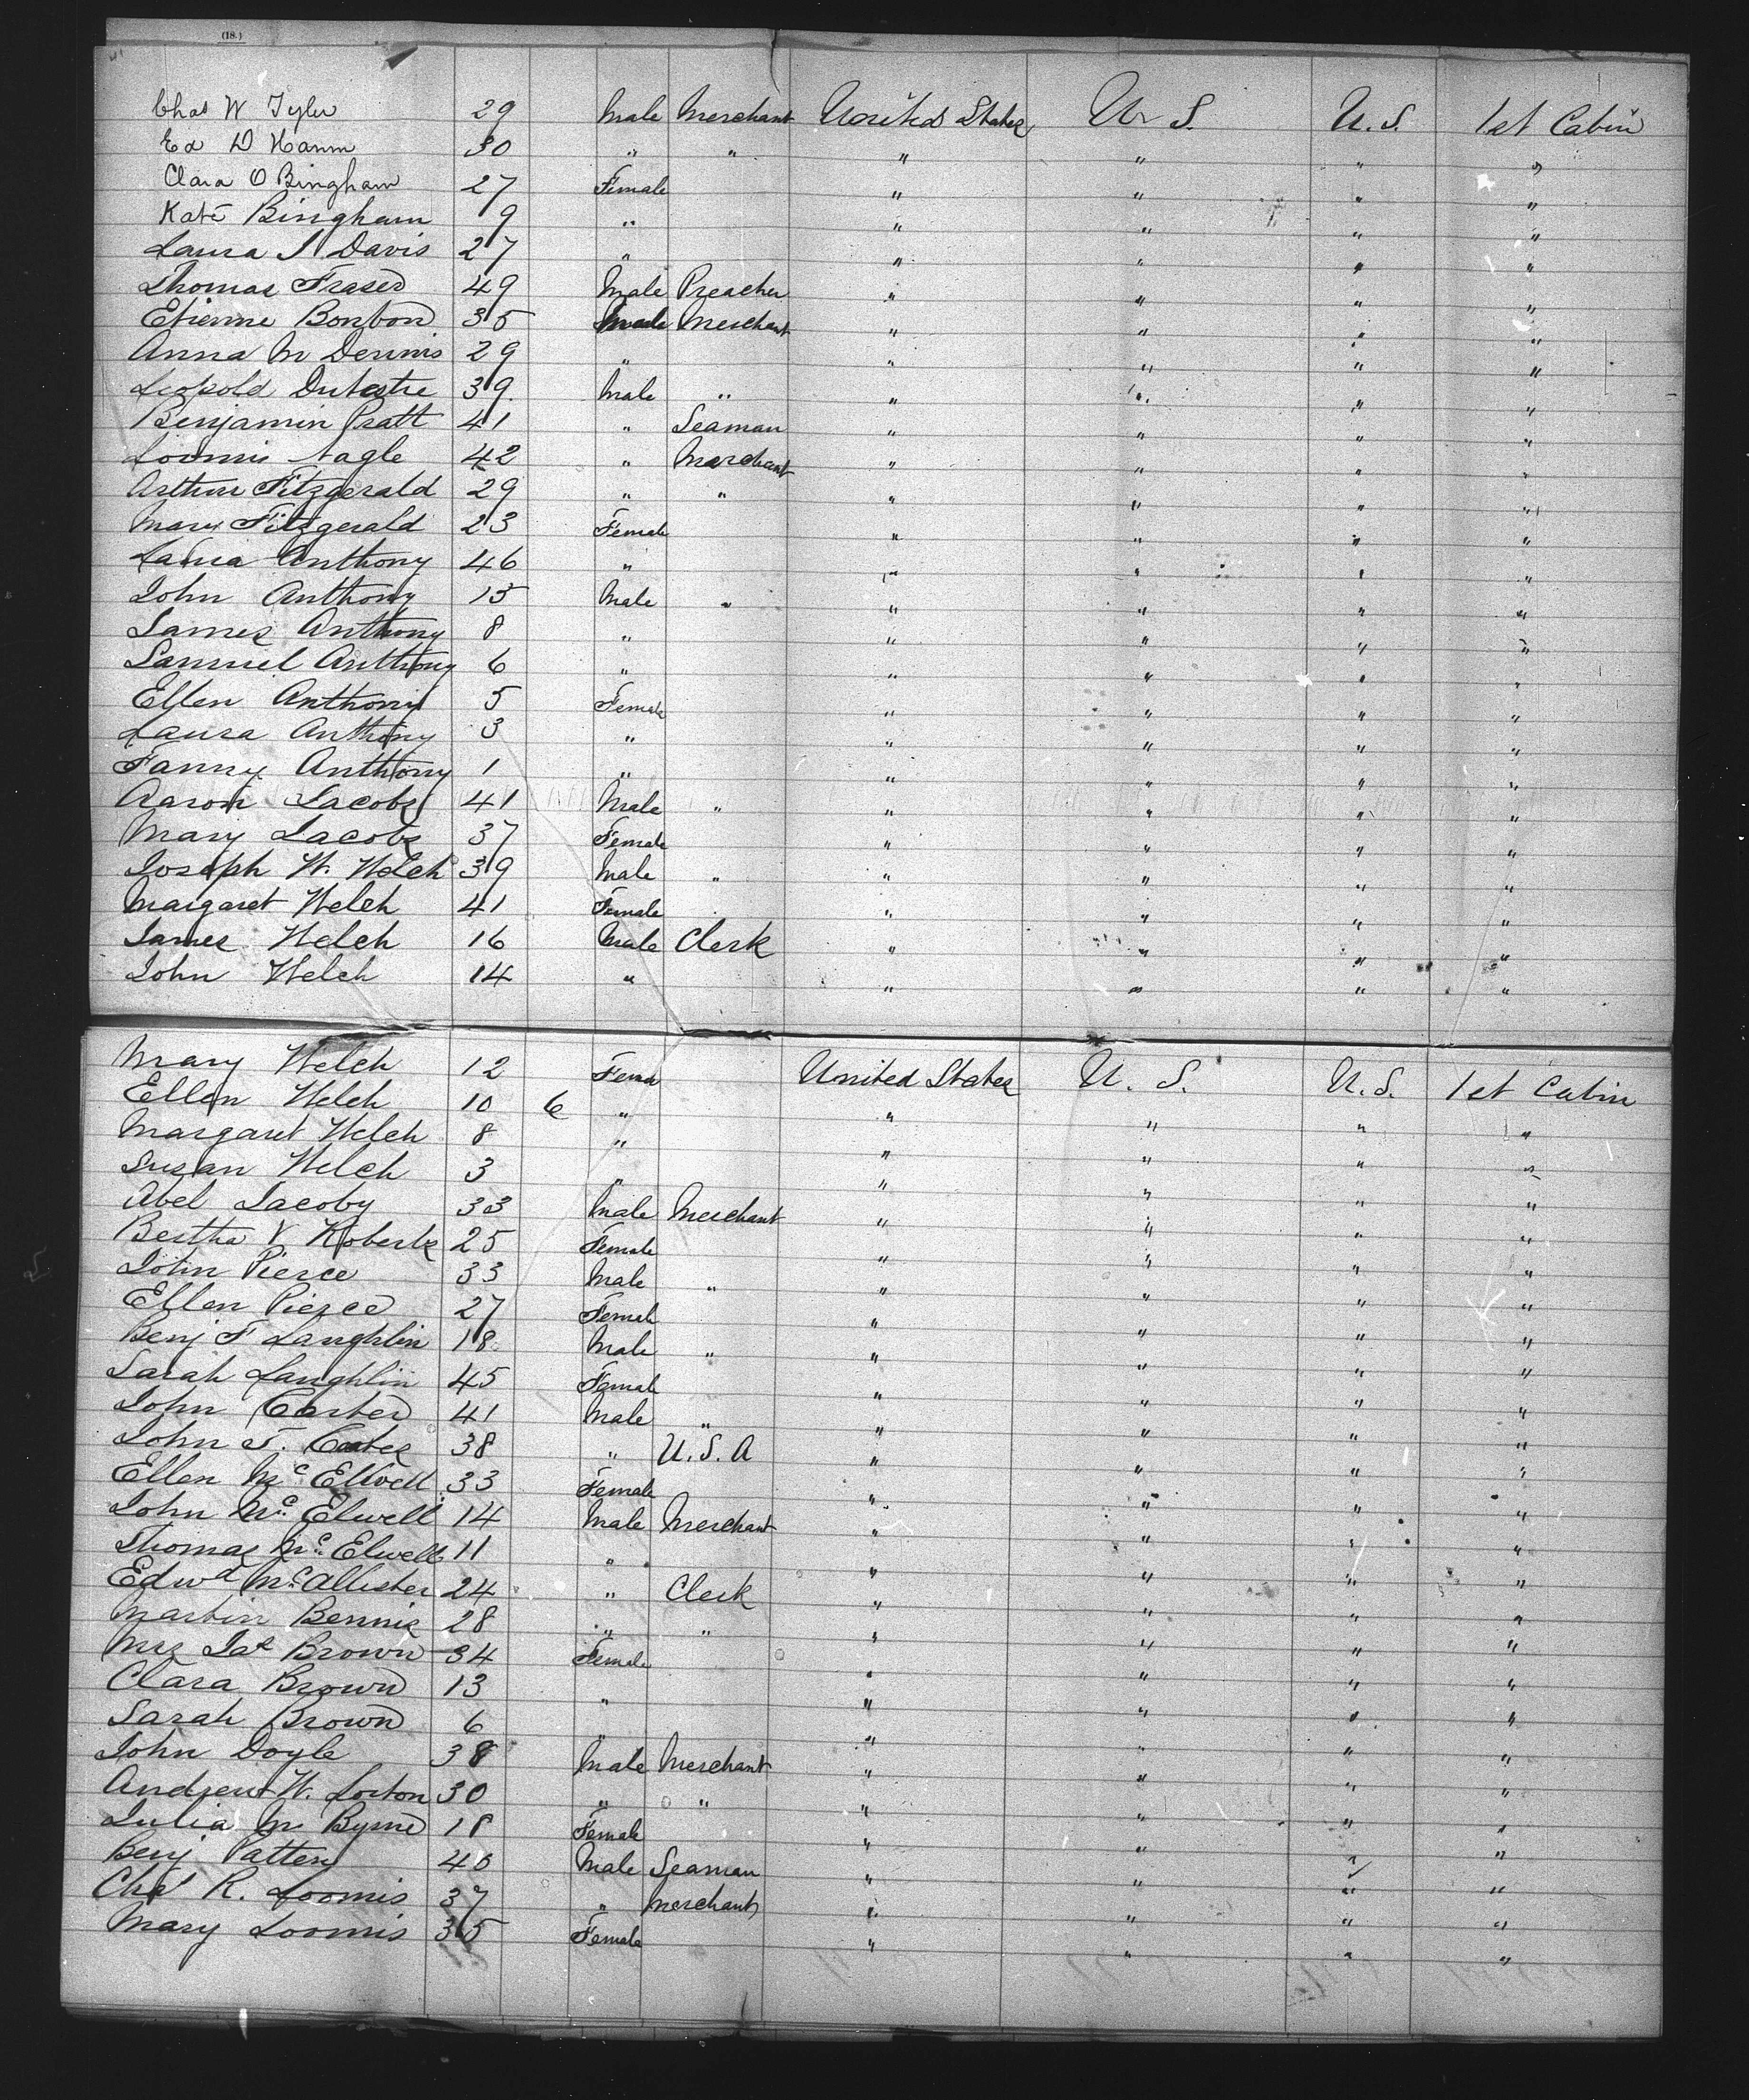 (18.)
Chas W Tyler 29 Male Merchant United States U. S. U. S. 1st Cabin
Ed D Hamm 30 " " " " " "
Clara O Bingham 27 Female " " " "
Kate Bingham 9 " " " " "
Laura J Davis 27 " " " " "
Thomas Fraser 49 Male Preacher " " " "
Etienne Bonbon 35 Male Merchant " " " "
Anna M Dennis 29 " " " " "
Leopold Dutastre 39 Male " " " " "
Benjamin Pratt 41 " Seaman " " " "
Loomis Nagle 42 " Merchant " " " "
Arthur Fitzgerald 29 " " " " " "
Mary Fitzgerald 23 Female " " " "
Laura Anthony 46 " " " " "
John Anthony 15 Male " " " " "
James Anthony 8 " " " " "
Samuel Anthony 6 " " " " "
Ellen Anthony 5 Female " " " "
Laura Anthony 3 " " " " "
Fanny Anthony 1 " " " " "
Aaron Jacobs 41 Male " " " " "
Mary Jacobs 37 Female " " " "
Joseph W. Welch 39 Male " " " " "
Margaret Welch 41 Female " " " "
James Welch 16 Male Clerk " " " "
John Welch 14 " " " " "
Mary Welch 12 Fema United States U. S. U. S. 1st Cabin
Ellen Welch 10 6 " " " " "
Margaret Welch 8 " " " " "
Susan Welch 3 " " " " "
Abel Jacoby 33 Male Merchant " " " "
Bertha V Roberts 25 Female " " " "
John Pierce 33 Male " " " " "
Ellen Pierce 27 Female " " " "
Benj F Laughlin 18 Male " " " " "
Sarah Laughlin 45 Female " " " "
John Carter 41 Male " " " " "
John T. 38 " U. S. A " " " "
Ellen McElwell 33 Female " " " "
John McElwell 14 Male Merchant " " " "
Thomas McElwell 11 " " " " "
Edwd McAllister 24 " Clerk " " " "
Martin Bennis 28 " " " " " "
Mrs Jas Brown 34 Female " " " "
Clara Brown 13 " " " " "
Sarah Brown 6 " " " " "
John Doyle 38 Male Merchant " " " "
Andrew W. Lorton 30 " " " " " "
Julia M Byrne 18 Female " " " "
Benj Patten 40 Male Seaman " " " "
Chas R. Loomis 37 " Merchant " " " "
Mary Loomis 35 Female " " " "